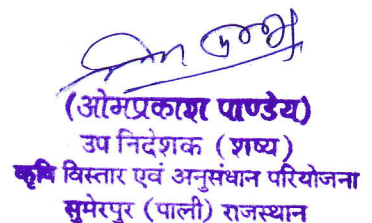 (ओमप्रकाश पाण्डेय)
उप निदेशक (शष्य)
कृषि विस्तार एवं अनुसंधान परियोजना
सुमेरपुर (पाली) राजस्थान